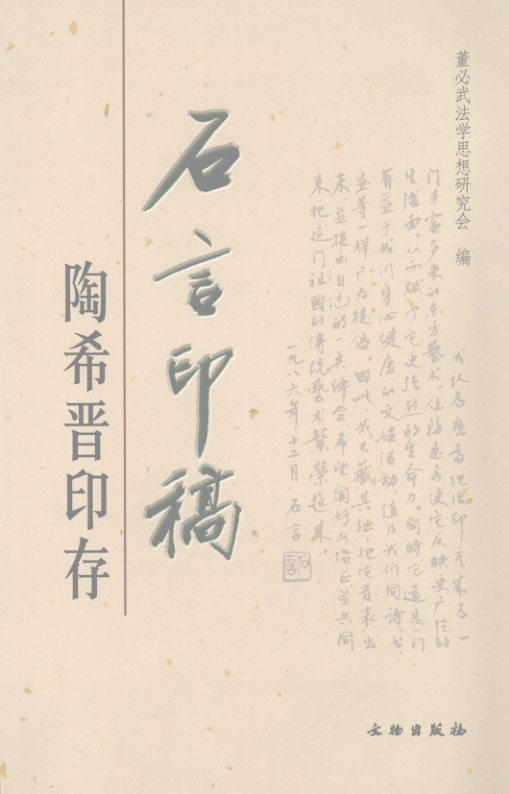 董必武法学思想研究会 编
石言印稿
陶希晋印存
我认为应当把治印 成为一
门丰富多采的东方艺术，使 它反映更广泛的
生活面，从而赋予它更强烈的生命力。同时它还是一门
有益于我们身心健康的文娱活动，值得我们同诗、书、
画等一样 为提倡。因此，我不藏其拙，把它发表出
来，并提出自己的一点体会，希望同好 指正并共同
来把这门祖國的传统艺术繁荣起来。
一九八六年十二月，石言
石言
文物出版社